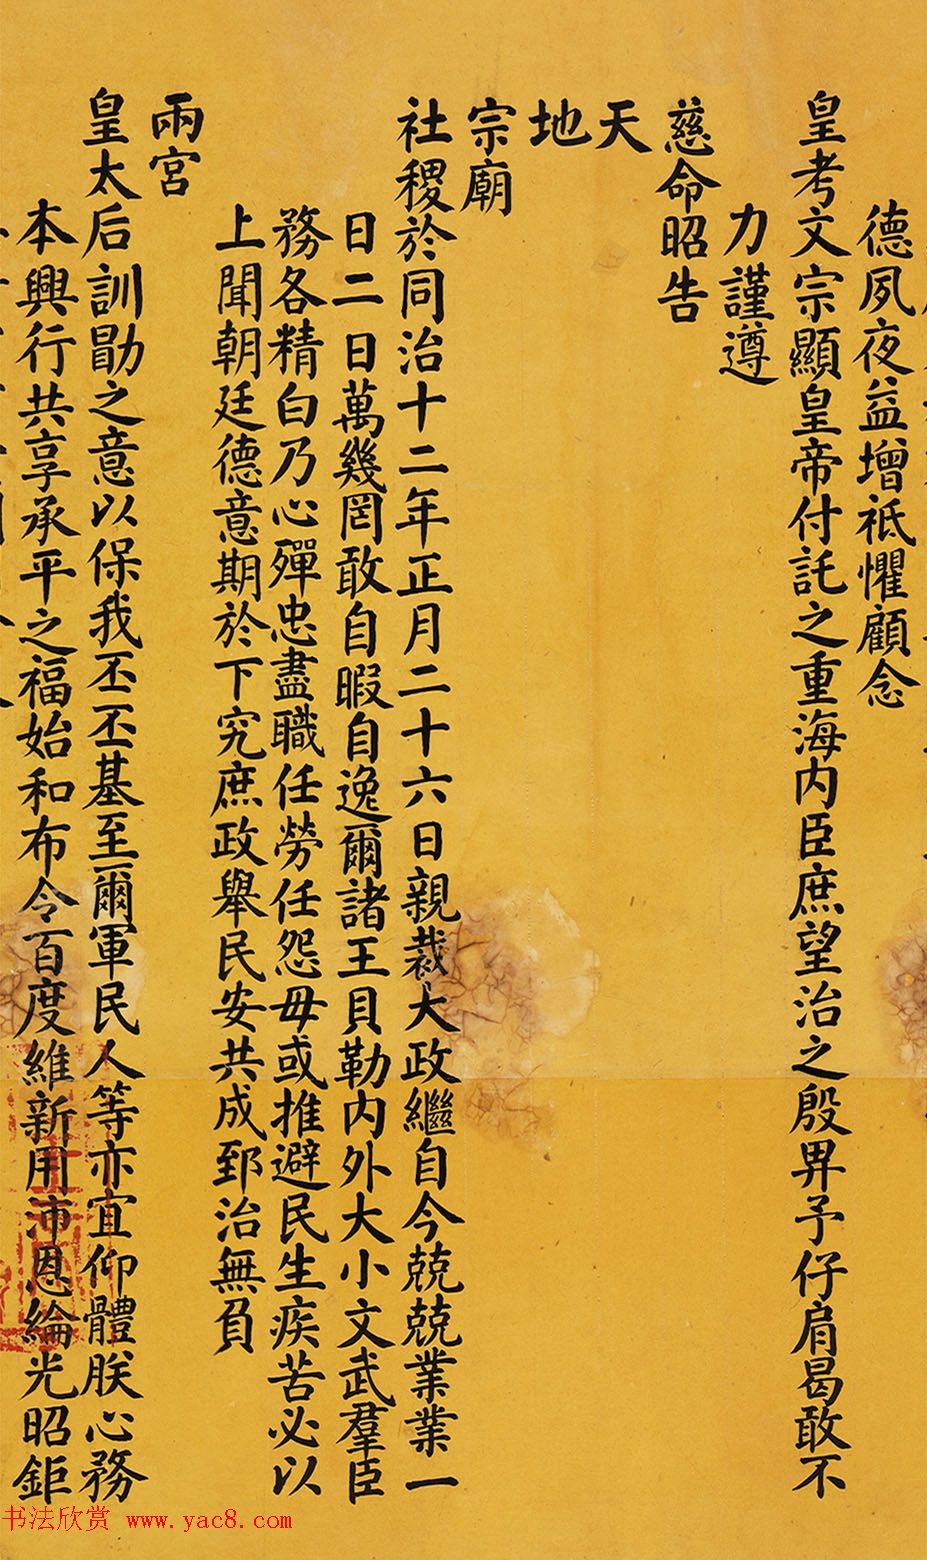 德夙夜益增祗懼顧念
皇考文宗顯皇帝付託之重海内臣庶望治之殷畀予仔肩曷敢不
力謹遵
慈命昭告
天
地
宗廟
社稷於同治十二年正月二十六日親裁大政繼自今兢兢業業一
日二日萬幾罔敢自暇自逸爾諸王貝勒内外大小文武羣臣
務各精白乃心殫忠盡職任勞任怨毋或推避民生疾苦必以
上聞朝廷德意期於下究庶政舉民安共成郅治無負
兩宮
皇太后訓勖之意以保我丕丕基至爾軍民人等亦宜仰體朕心務
本興行共享承平之福始和布令百度維新用沛恩綸光昭鉅
书法欣赏 www.yac8.com